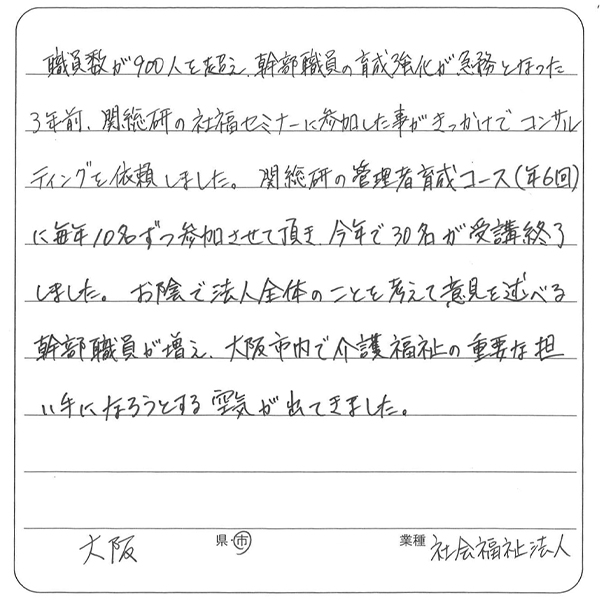 職員数が900人を超え、幹部職員の育成強化が急務となった
3年前、関総研の社福セミナーに参加した事がきっかけでコンサル
ティングを依頼しました。関総研の管理者育成コース(年6回)
に毎年10名ずつ参加させて頂き、今年で30名が受講終了
しました。お陰で法人全体のことを考えて意見を述べる
幹部職員が増え、大阪市内で介護福祉の重要な担
い手になろうとする空気が出てきました。
大阪 県・市 業種 社会福祉法人